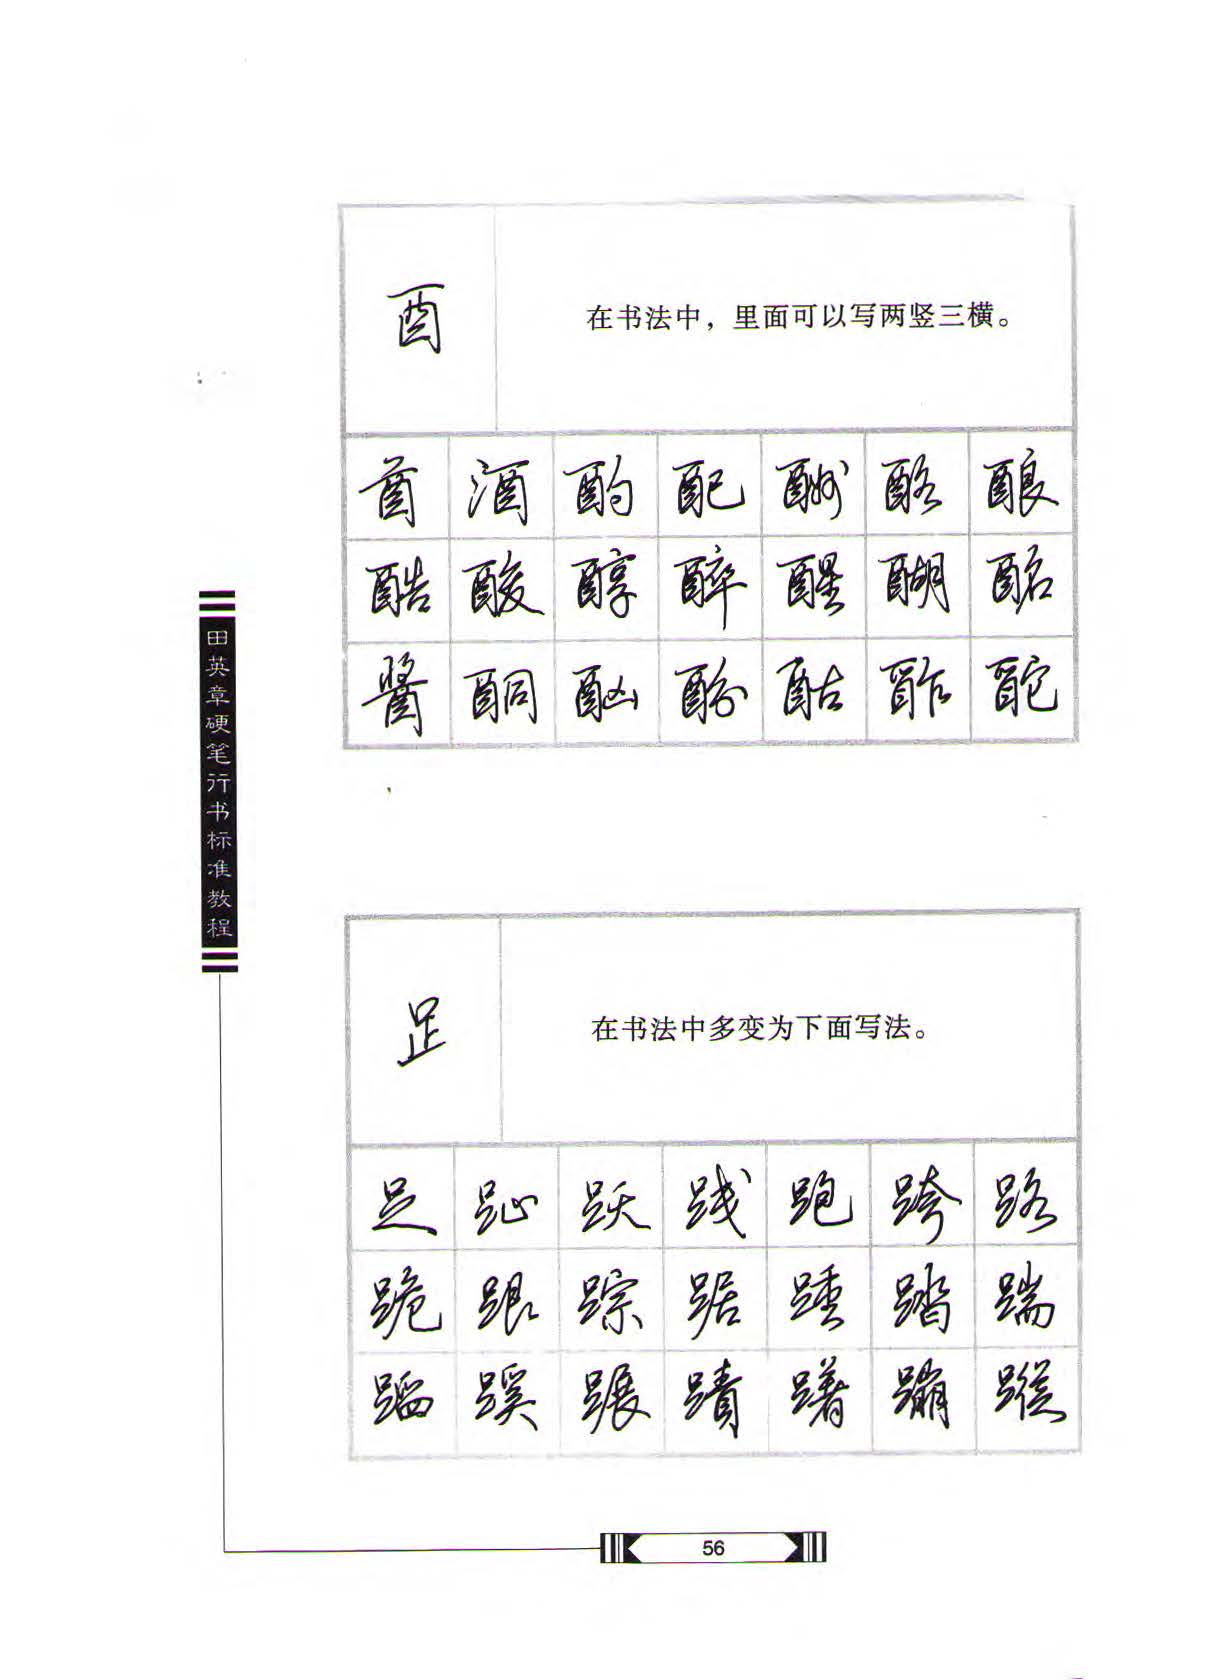 酉
在书法中，里面可以写两竖三横。
酋 酒 酌 配 酬 酪 酿
酷 酸 醇 醉 醒 醐 酩
酱 酮 酗 酚 酤 酢 酡
田英章硬笔行书标准教程
足
在书法中多变为下面写法。
足 趾 跃 践 跑 跨 路
跪 跟 踪 踞 踵 踏 踹
蹈 蹊 蹍 蹟 躇 蹦 蹤
56